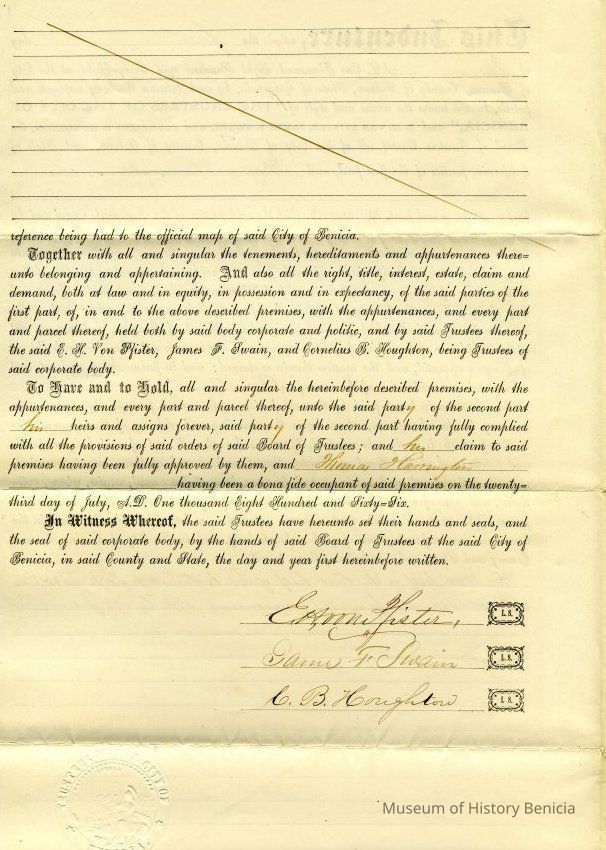 This Indenture,
reference being had to the official map of said City of Benicia.
Together with all and singular the tenements, hereditaments and appurtenances there=
unto belonging and appertaining. And also all the right, title, interest, estate, claim and
demand, both at law and in equity, in possession and in expectancy, of the said parties of the
first part, of, in and to the above described premises, with the appurtenances, and every part
and parcel thereof, held both by said body corporate and politic, and by said Trustees thereof,
the said E. H. Von Pfister, James F. Swain, and Cornelius B. Houghton, being Trustees of
said corporate body.
To Have and to Hold, all and singular the hereinbefore described premises, with the
appurtenances, and every part and parcel thereof, unto the said party of the second part
his heirs and assigns forever, said party of the second part having fully complied
with all the provisions of said orders of said Board of Trustees; and his claim to said
premises having been fully approved by them, and Thomas Harrington
having been a bona fide occupant of said premises on the twenty=
third day of July, A.D. One thousand Eight Hundred and Sixty=Six.
In Witness Whereof, the said Trustees have hereunto set their hands and seals, and
the seal of said corporate body, by the hands of said Board of Trustees at the said City of
Benicia, in said County and State, the day and year first hereinbefore written.
E H von Pfister, L.S.
James F Swain L.S.
C. B. Houghton L.S.
Museum of History Benicia